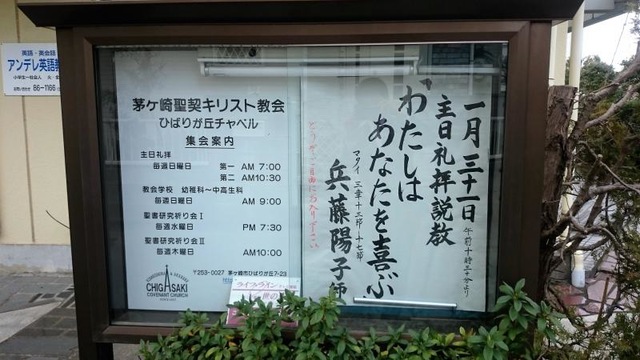 英語・英会話
アンデレ英語
86-1166
茅ケ崎聖契キリスト教会
ひばりが丘チャペル
集会案内
主日礼拝
毎週日曜日 第一 AM 7:00
第二 AM10:30
教会学校 幼稚科〜中高生科
毎週日曜日 AM 9:00
聖書研究祈り会Ⅰ
毎週水曜日 PM 7:30
聖書研究祈り会Ⅱ
毎週木曜日 AM10:00
〒253-0027 茅ケ崎市ひばりが丘7-23
CHIGASAKI
COVENANT CHURCH
ライフ・ライン
一月三十一日
主日礼拝説教 午前十時三十分より
「わたしは
あなたを喜ぶ
マタイ 三章十三節-十七節
兵藤陽子師
どうぞご自由にお入り下さい